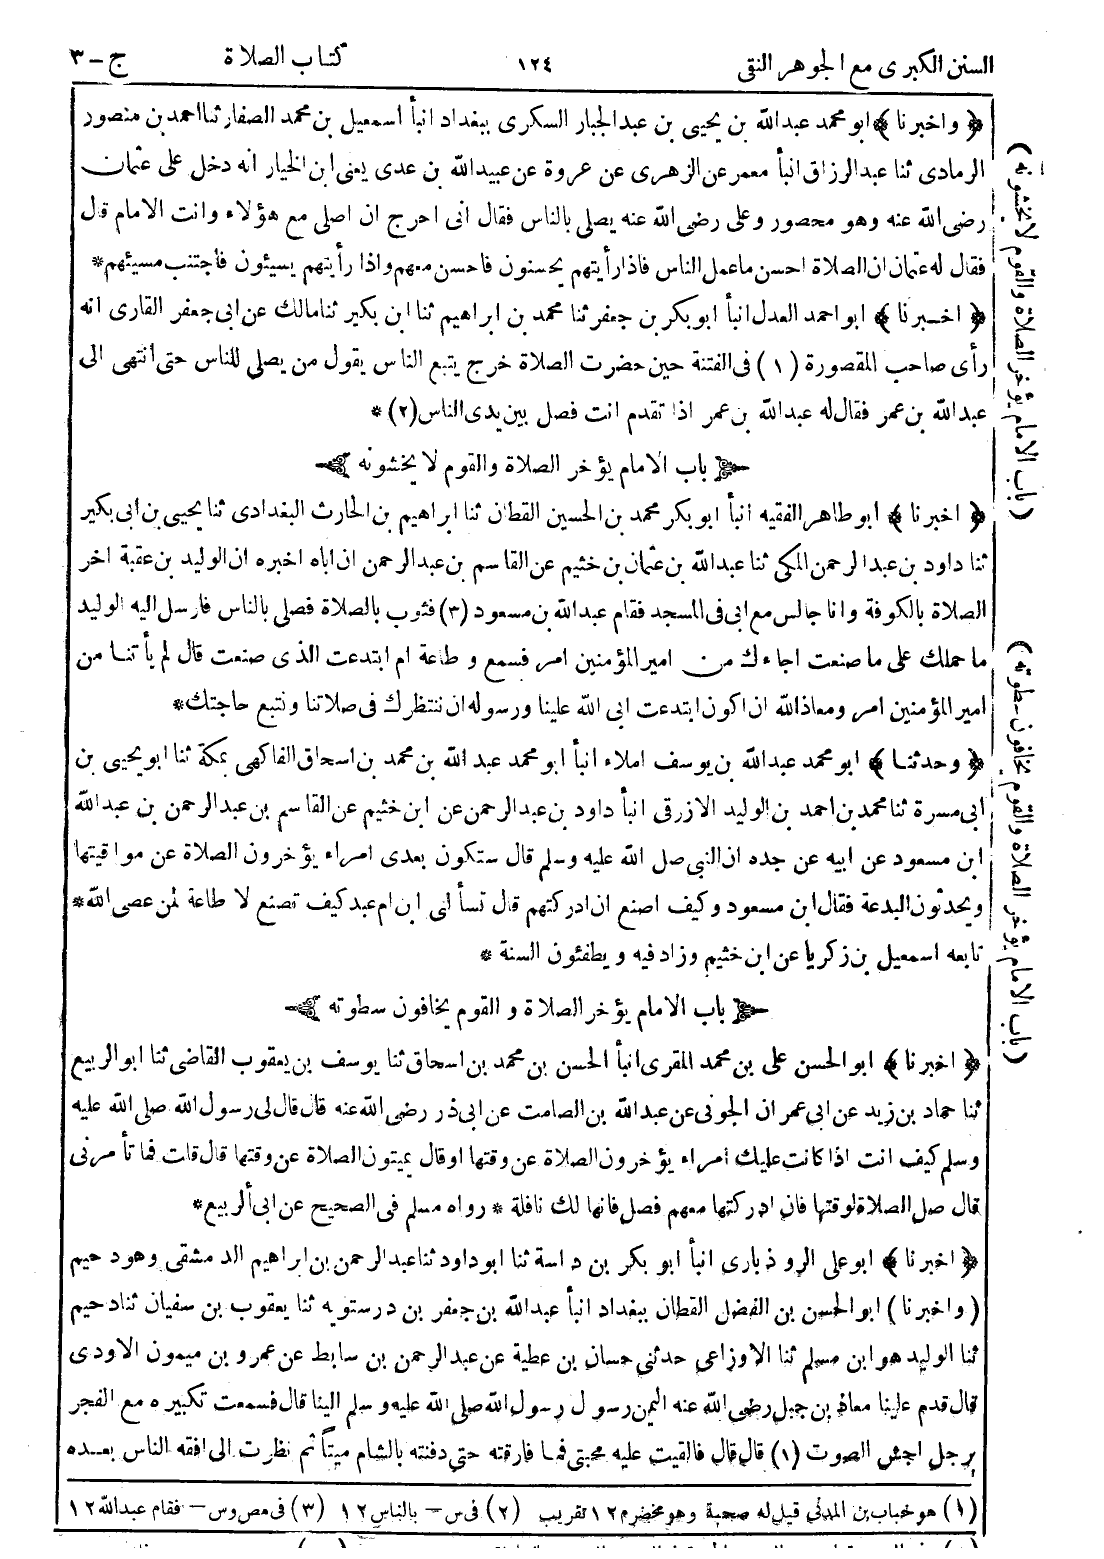 السنن الكبرى مع الجوهر النقى ١٢٤ كتاب الصلاة ج-٣
﴿ واخبرنا ﴾ ابو محمد عبدالله بن يحيى بن عبدالجبار السكرى ببغداد انبأ اسمعيل بن محمد الصفار ثنا احمد بن منصور
الرمادى ثنا عبدالرزاق انبأ معمر عن الزهرى عن عروة عن عبيدالله بن عدى يعنى ابن الخيار انه دخل على عثمان
رضى الله عنه وهو محصور وعلى رضى الله عنه يصلى بالناس فقال انى احرج ان اصلى مع هؤلاء وانت الامام قال
فقال له عثمان ان الصلاة احسن ما عمل الناس فاذا رأيتهم يحسنون فاحسن معهم واذا رأيتهم يسيئون فاجتنب مسيئهم*
﴿ اخبرنا ﴾ ابو احمد العدل انبأ ابو بكر بن جعفر ثنا محمد بن ابراهيم ثنا ابن بكير ثنا مالك عن ابى جعفر القارى انه
رأى صاحب المقصورة (١) فى الفتنة حين حضرت الصلاة خرج يتبع الناس يقول من يصلى للناس حتى انتهى الى
عبدالله بن عمر فقال له عبدالله بن عمر اذا تقدم انت فصل بين يدى الناس (٢) *
باب الامام يؤخر الصلاة والقوم لا يخشونه
﴿ اخبرنا ﴾ ابو طاهر الفقيه انبأ ابو بكر محمد بن الحسين القطان ثنا ابراهيم بن الحارث البغدادى ثنا يحيى بن ابى بكير
ثنا داود بن عبدالرحمن المكى ثنا عبدالله بن عثمان بن خثيم عن القاسم بن عبدالرحمن ان اباه اخبره ان الوليد بن عقبة اخر
الصلاة بالكوفة وانا جالس مع ابى فى المسجد فقام عبدالله بن مسعود (٣) فثوب بالصلاة فصلى بالناس فارسل اليه الوليد
ما حملك على ما صنعت اجاءك من امير المؤمنين امر فسمع وطاعة ام ابتدعت الذى صنعت قال لم يأتنا من
امير المؤمنين امر ومعاذالله ان اكون ابتدعت ابى الله علينا ورسوله ان ننتظرك فى صلاتنا ونتبع حاجتك*
﴿ وحدثنا ﴾ ابو محمد عبدالله بن يوسف املاء انبأ ابو محمد عبد الله بن محمد بن اسحاق الفاكهى بمكة ثنا ابو يحيى بن
ابى مسرة ثنا محمد بن احمد بن الوليد الازرقى انبأ داود بن عبدالرحمن عن ابن خثيم عن القاسم بن عبدالرحمن بن عبدالله
ابن مسعود عن ابيه عن جده ان النبى صلى الله عليه وسلم قال ستكون بعدى امراء يؤخرون الصلاة عن مواقيتها
ويحدثون البدعة فقال ابن مسعود وكيف اصنع ان ادركتهم قال تسألنى ابن ام عبد كيف تصنع لا طاعة لمن عصى الله*
تابعه اسمعيل بن زكريا عن ابن خثيم وزاد فيه ويطفئون السنة *
باب الامام يؤخر الصلاة و القوم يخافون سطوته
﴿ اخبرنا ﴾ ابو الحسن على بن محمد المقرى انبأ الحسن بن محمد بن اسحاق ثنا يوسف بن يعقوب القاضى ثنا ابو الربيع
ثنا حماد بن زيد عن ابى عمران الجونى عن عبدالله بن الصامت عن ابى ذر رضى الله عنه قال قال لى رسول الله صلى الله عليه
وسلم كيف انت اذا كانت عليك امراء يؤخرون الصلاة عن وقتها او قال يميتون الصلاة عن وقتها قال قلت فما تأمرنى
قال صل الصلاة لوقتها فان ادركتها معهم فصل فانها لك نافلة * رواه مسلم فى الصحيح عن ابى الربيع*
﴿ اخبرنا ﴾ ابو على الروذبارى انبأ ابو بكر بن داسة ثنا ابو داود ثنا عبدالرحمن بن ابراهيم الدمشقى وهو دحيم
(واخبرنا) ابو الحسين بن الفضل القطان ببغداد انبأ عبدالله بن جعفر بن درستويه ثنا يعقوب بن سفيان ثنا دحيم
ثنا الوليد هو ابن مسلم ثنا الاوزاعى حدثنى حسان بن عطية عن عبدالرحمن بن سابط عن عمرو بن ميمون الاودى
قال قدم علينا معاذ بن جبل رضى الله عنه اليمن رسول رسول الله صلى الله عليه وسلم الينا قال فسمعت تكبيره مع الفجر
رجل اجش الصوت (١) قال قال فالقيت عليه محبتى فما فارقته حتى دفنته بالشام ميتا ثم نظرت الى افقه الناس بعده
(١) هو خباب بن المدنى قيل له صحبة وهو مخضرم ١٢ تقريب (٢) فى س - بالناس ١٢ (٣) فى مص وس - فقام عبدالله ١٢
(باب الامام يؤخر الصلاة والقوم لا يخشونه)
(باب الامام يؤخر الصلاة والقوم يخافون سطوته)